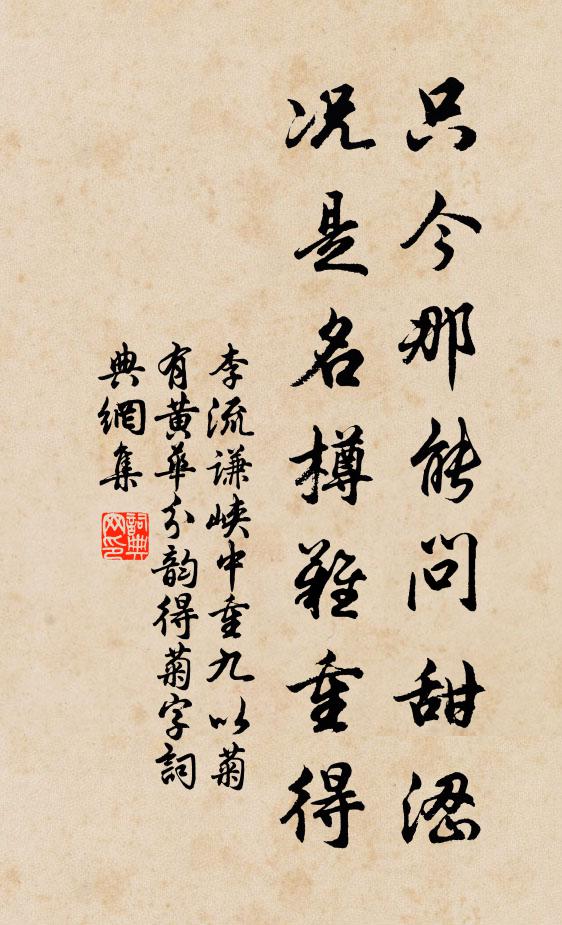 只今那能问甜涩
况是名樽难重得
李流谦峡中重九以菊
有黄华分韵得菊字词
典網集
詞典
网印